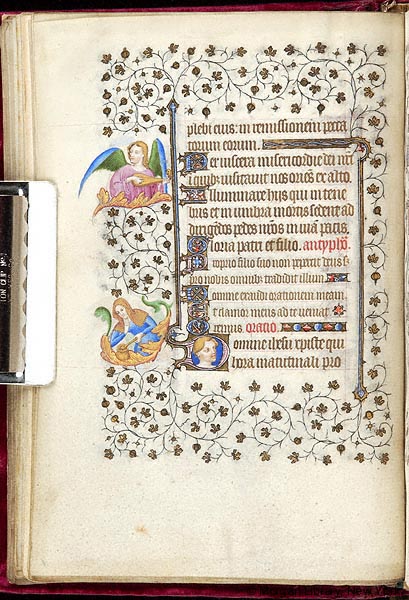 plebi eius: in remissionem pecca
torum eorum.
Per viscera misericordie dei nri
in quib; visitavit nos oriens ex alto.
Illuminare hijs qui in tene
bris et in umbra mortis sedent ad
dirigendos pedes nros in viam pacis.
Gloria patri et filio. antyph̄
Proprio filio suo non pepercit deus s;
pro nobis omnib; tradidit illum
Domine exaudi orationem meam
et clamor meus ad te veniat
Oremus Oracio.
Domine ihesu xpiste qui
hora matutinali pro